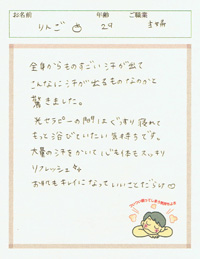 お名前 年齢 ご職業
りんご 24 主婦
全身からものすごい汗が出て
こんなに汗が出るものなのかと
驚きました。
光セラピーの時はぐっすり寝れて
もっと浴びていたい気持ちです。
大量の汗をかいて心も体もスッキリ
リフレッシュ
お肌もキレイになっていいことだらけ♡